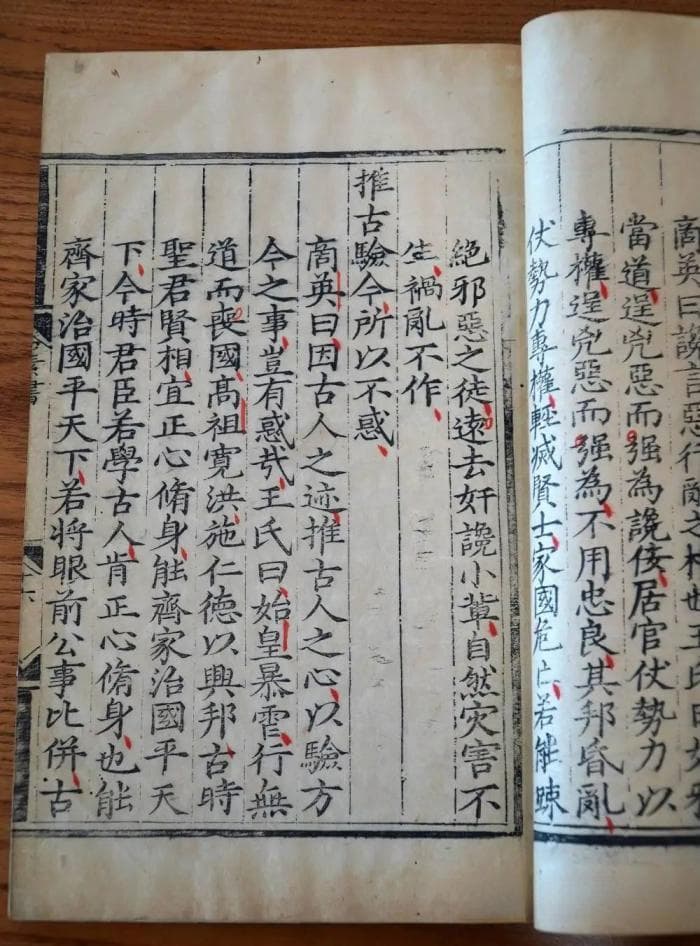 商英曰讒言惡行之也王氏曰
當道逞兇惡而强為讒佞居官仗勢力以
專權逞兇惡而强為不用忠良其邦昏亂
仗勢力專權輕减賢士家國危亡若能踈
絕邪惡之徒遠去奸讒小輩自然灾害不
生禍亂不作
推古驗今所以不惑
商英曰因古人之迹推古人之心以驗方
今之事豈有惑哉王氏曰始皇暴虐行無
道而喪國高祖寬洪施仁德以興邦古時
聖君賢相宜正心脩身能齊家治國平天
下今時君臣若學古人肯正心脩身也能
齊家治國平天下若將眼前公事比併古